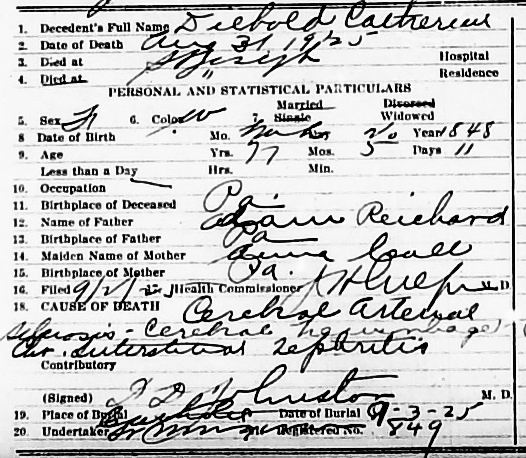 1. Decedent's Full Name Diebold Catherine
2. Date of Death Aug 31 1925
3. Died at St Joseph Hospital
4. Died at " Residence
PERSONAL AND STATISTICAL PARTICULARS
5. Sex F 6. Color W 7. Married Single Divorced Widowed
8 Date of Birth Mo. Day 20 Year 1848
9. Age Yrs. 77 Mos. 5 Days 11
Less than a Day Hrs. Min.
10. Occupation
11. Birthplace of Deceased Pa.
12. Name of Father Adam Reichard
13. Birthplace of Father Pa
14. Maiden Name of Mother Anna
15. Birthplace of Mother Pa.
16. Filed 9/2/25 Health Commissioner D.
18. CAUSE OF DEATH Cerebral Arterial
sclerosis - Cerebral hemorrhage
Chr. Interstitial Nephritis
Contributory
(Signed) Johnston M. D.
19. Place of Burial Date of Burial 9-3-25
20. Undertaker Registered No. 849